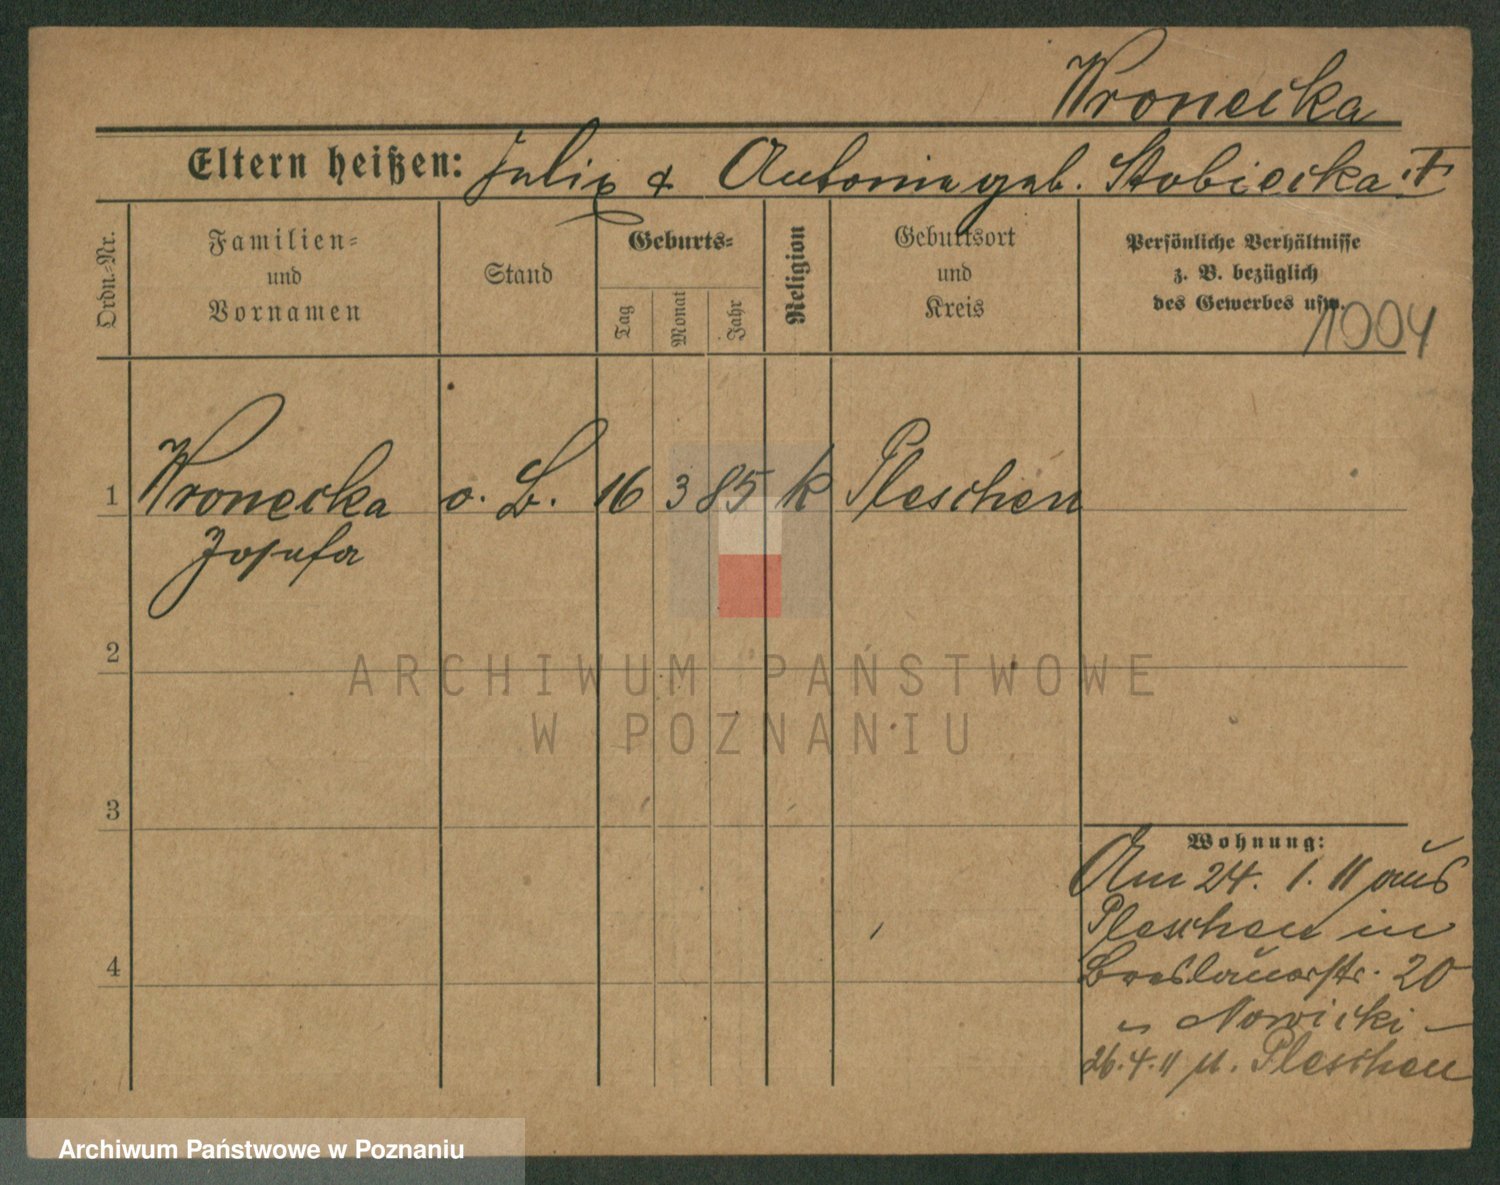 Wronecka
Eltern heißen: Julix & Antonie geb. Stobiecka
Ordn.-Nr.
Familien-
und
Vornamen
Stand
Geburts-
Tag
Monat
Jahr
Religion
Geburtsort
und
Kreis
Persönliche Verhältnisse
z. B. bezüglich
des Gewerbes usw.
1004
1 Wronecka o. B. 16 3 85 k Pleschen
Josefa
2
3
4
Wohnung:
Am 24. 1. 11 aus
Pleschen in
Breslauerstr. 20
Nowicki
26.4.11 n. Pleschen
ARCHIWUM PAŃSTWOWE
W POZNANIU
Archiwum Państwowe w Poznaniu